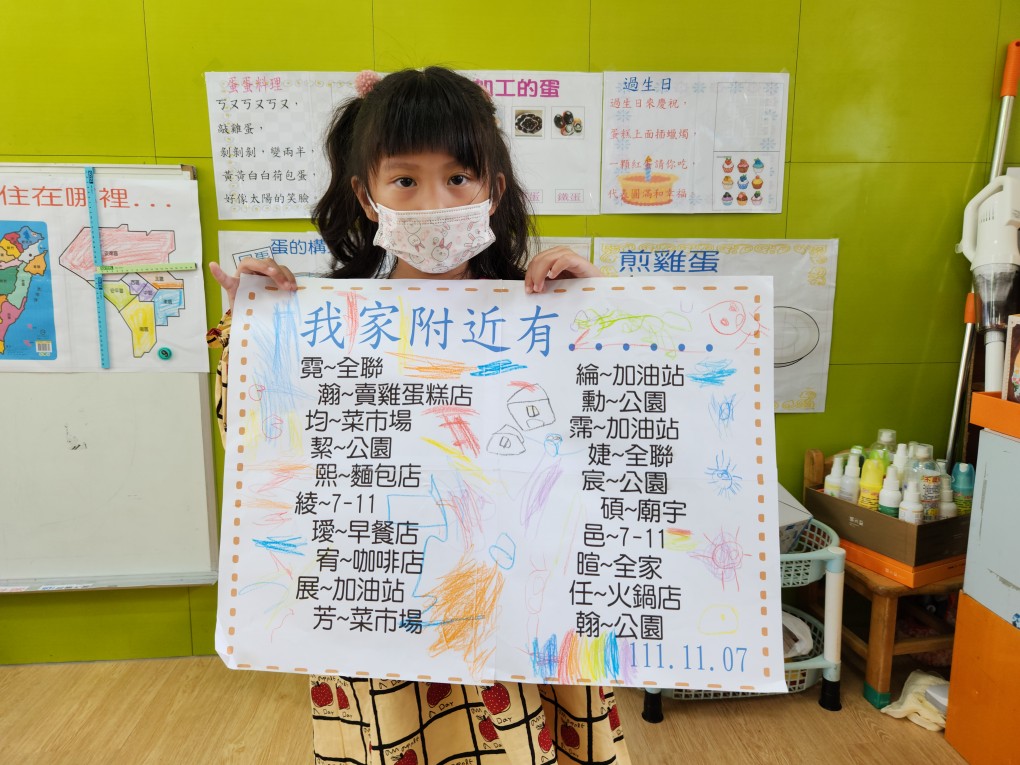 蛋蛋料理
ㄎㄡㄎㄡㄎㄡ，
敲雞蛋，
剝剝剝，變兩半，
黃黃白白荷包蛋，
好像太陽的笑臉，
加工的蛋
鐵蛋
過生日
過生日來慶祝，
蛋糕上面插蠟燭，
一顆紅
請你吃，
代表圓滿和幸福
住在哪裡...
蛋的構
煎雞蛋
我家附近有......
霓~全聯
瀚~賣雞蛋糕店
均~菜市場
絜~公園
熙~麵包店
綾~7-11
璦~早餐店
宥~咖啡店
展~加油站
芳~菜市場
綸~加油站
勳~公園
霈~加油站
婕~全聯
宸~公園
碩~廟宇
邑~7-11
暄~全家
任~火鍋店
翰~公園
111.11.07